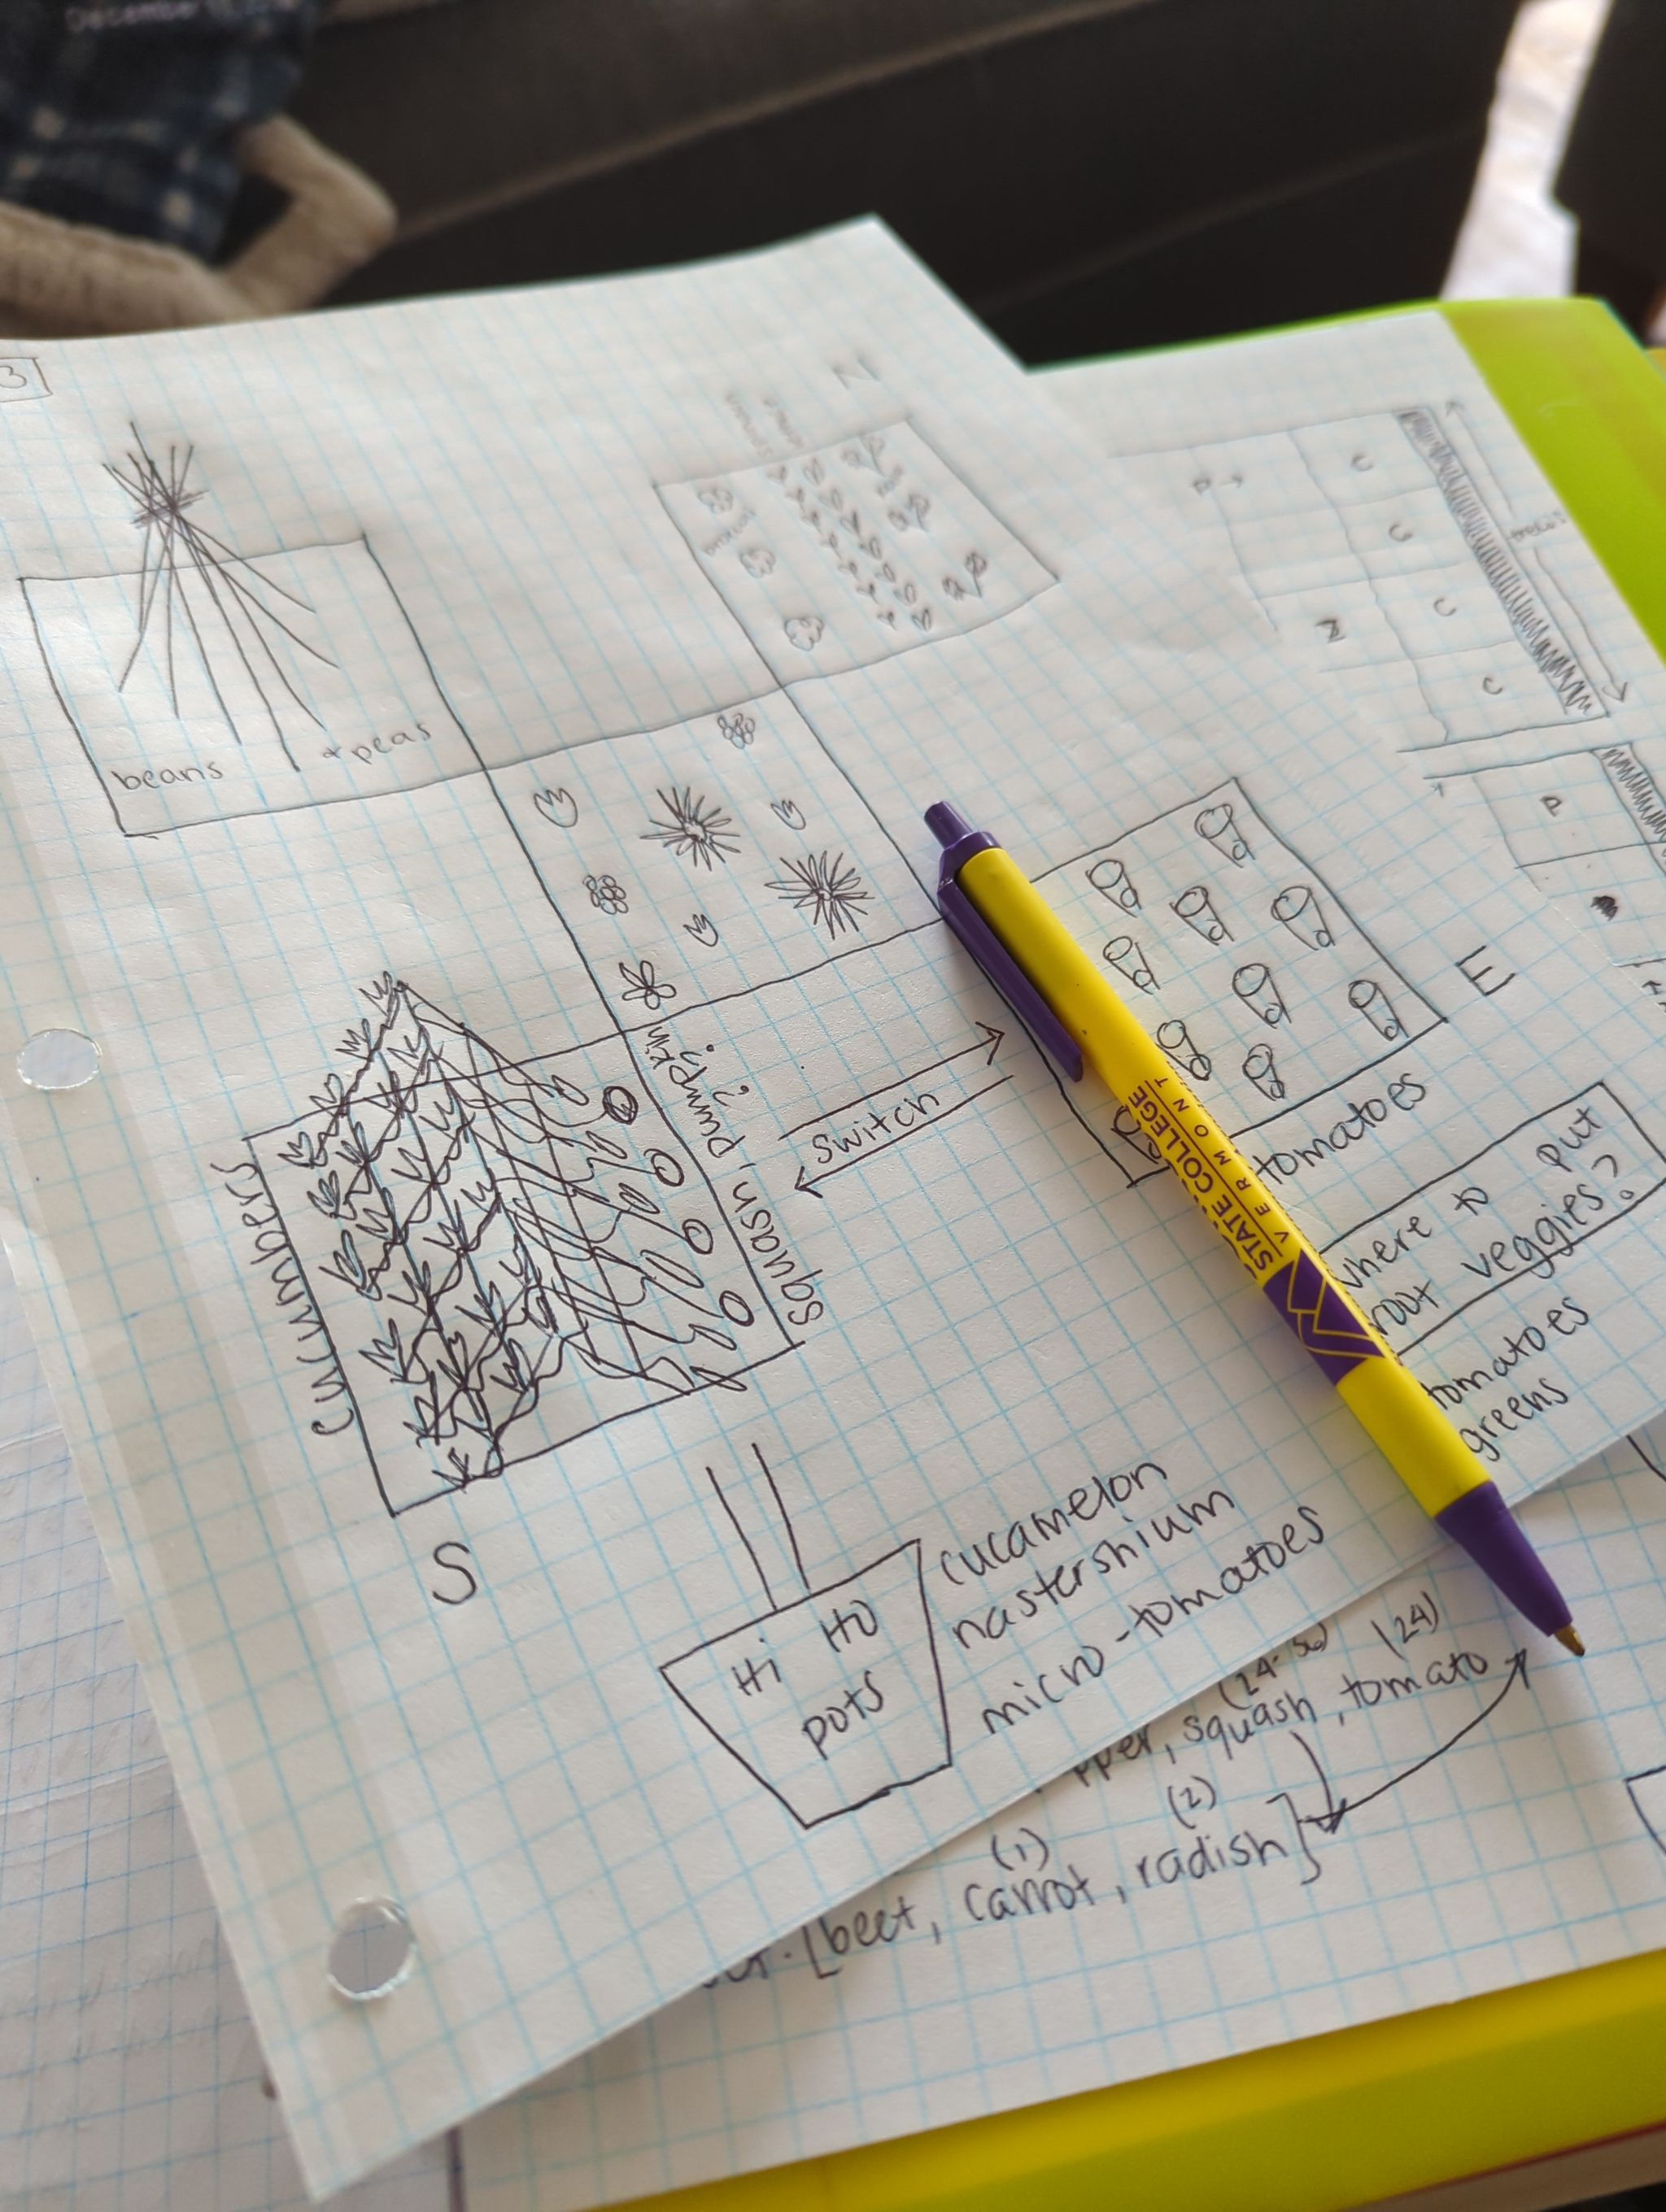 3
N
beans
& peas
P →
C
C
C
C
Z
P
cucumbers
squash, pumpkin
switch
E
tomatoes
where to put
root veggies?
tomatoes
greens
S
Hi Ho
pots
cucamelon
nastershium
micro-tomatoes
STATE COLLEGE
VERMONT
(24)
squash, tomato
(1)
(2)
[beet, carrot, radish]